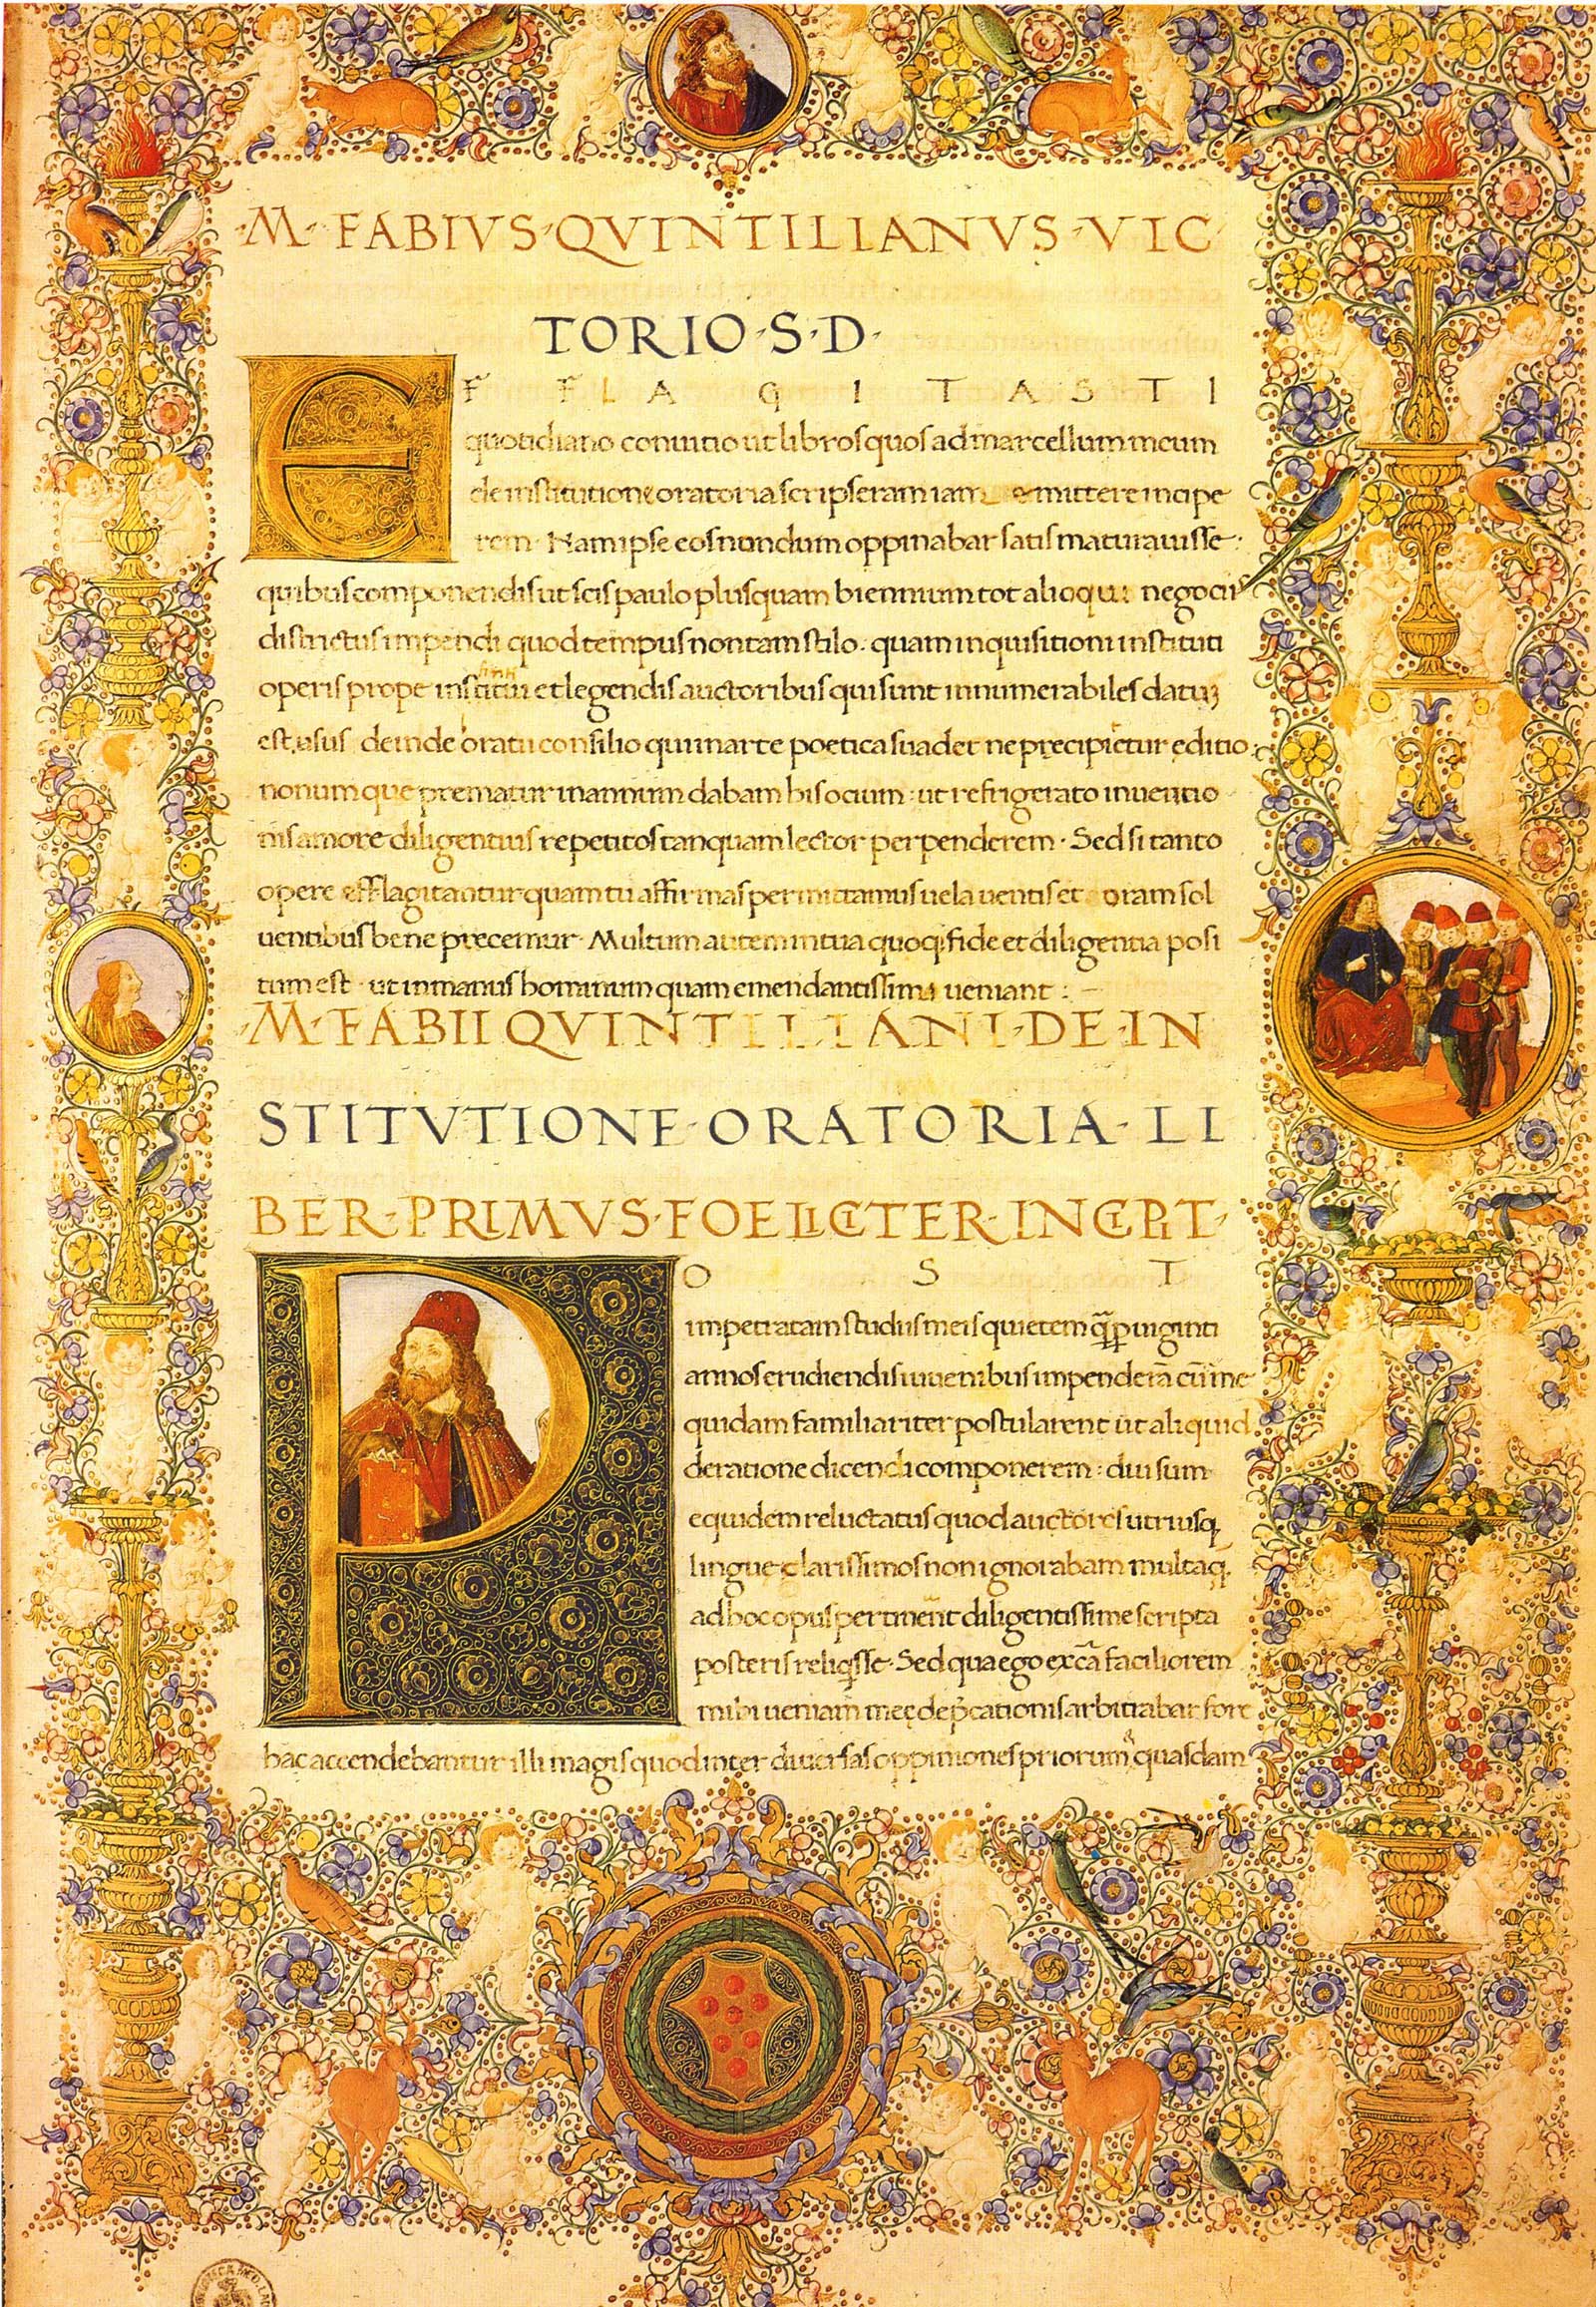 ·M·FABIVS·QVINTILIANVS·VIC
TORIO·S·D·
EFFLAGITASTI
quotidiano conuitio ut libros quos ad marcellum meum
de institutione oratoria scripseram iam emittere incipe
rem· Nam ipse eos nondum oppinabar satis maturauisse·
quibus componendis ut scis paulo plus quam biennium tot alioqui negociis
districtus impendi quod tempus non tam stilo· quam inquisitioni instituti
operis prope et legendis auctoribus qui sunt innumerabiles datuʒ
est usus deinde oratii consilio qui in arte poetica suadet ne precipietur editio
nonumque prematur in annum dabam his ocium: ut refrigerato inuentio
nis amore diligentius repetitos tanquam lector perpenderem· Sed si tanto
opere efflagitantur quam tu affirmas permittamus uela uentis et oram sol
uentibus bene precemur· Multum autem in tua quoqꝫ fide et diligentia posi
tum est· ut in manus hominum quam emendantissimi ueniant:
·M·FABII QVINTILIANI·DE·IN
STITVTIONE·ORATORIA·LI
BER·PRIMVS·FOELICITER·INCIPIT·
POST
impetratam studiis meis quietem q̄ꝑ uiginti
annos erudiendis iuuenibus impenderā cū me
quidam familiariter postularent ut aliquid
de ratione dicendi componerem: diu sum
equidem reluctatus quod auctores utriusqꝫ
lingue clarissimos non ignorabam multaqꝫ
ad hoc opus pertinent diligentissime scripta
posteris reliqisse· Sed qua ego ex cā faciliorem
mihi ueniam meę dep̄cationis arbitrabar fore
hac accendebantur illi magis quod inter diuersas oppiniones priorum quasdam